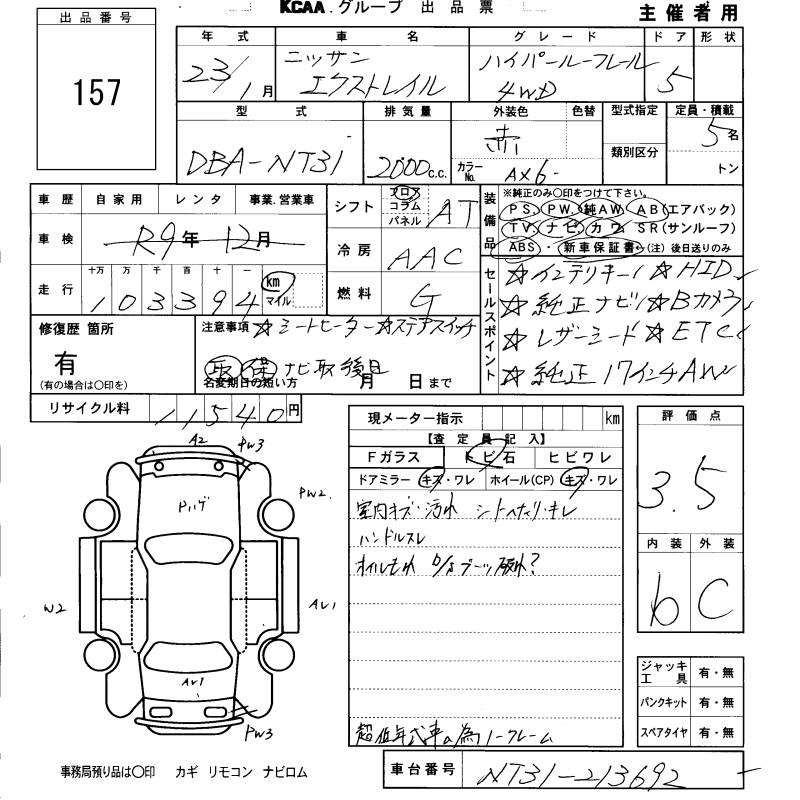 KCAA.グループ 出品票
主催者用
出品番号
157
年式 車名 グレード ドア 形状
23/1月 ニッサン エクストレイル ハイパールーフレール 4WD 5
型式 排気量 外装色 色替 型式指定 定員・積載
DBA-NT31 2000c.c. 赤 カラーNo. AX6 類別区分 5名 トン
車歴 自家用 レンタ 事業.営業車
車検 R9年12月
走行 十万 万 千 百 十 一
103394 km マイル
シフト フロア コラム パネル AT
冷房 AAC
燃料 G
装備品
※純正のみ〇印をつけて下さい。
PS. PW. 純AW AB(エアバック)
TV. ナビ カワ SR(サンルーフ)
ABS・新車保証書←(注)後日送りのみ
セールスポイント
☆インテリキー ☆HID
☆純正ナビ ☆Bカメラ
☆レザーシート ☆ETC
☆純正17インチAW
修復歴 箇所
有
(有の場合は〇印を)
注意事項 ☆シートヒーター ☆ステアスイッチ
取 保 ナビ取後日
名変期日の短い方 月 日まで
リサイクル料 11540円
現メーター指示 km
【査定員記入】
Fガラス トビ石 ヒビワレ
ドアミラー キズ・ワレ ホイール(CP) キズ・ワレ
室内キズ・汚れ シートヘタリ・キレ
ハンドルスレ
オイルもれ D/Sブーツ破れ?
超低年式車の為ノークレーム
評価点
3.5
内装 外装
b C
ジャッキ 工具 有・無
パンクキット 有・無
スペアタイヤ 有・無
A2
PW3
Pハゲ
PW2.
W2
AU1
AU1
PW3
事務局預り品は〇印 カギ リモコン ナビロム
車台番号 NT31-213692